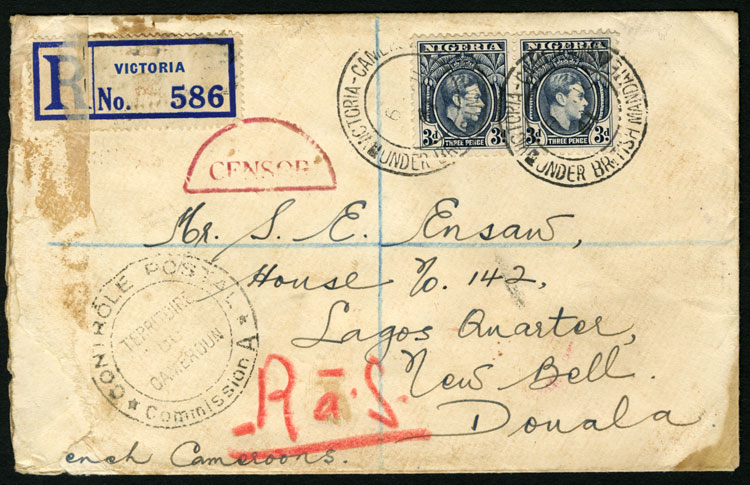 R VICTORIA
No. 586
NIGERIA
3d 3d
THREE PENCE
NIGERIA
3d 3d
THREE PENCE
VICTORIA-CAME
UNDER BR
VICTORIA-CA
UNDER BRITISH MANDATE
CENSOR
Mr. S. E. Ensaw,
House No. 142,
Lagos Quarter,
New Bell.
Douala.
ench Cameroons.
CONTRÔLE POSTAL
TERRITOIRE
DU
CAMEROUN
Commission A
R à. S.